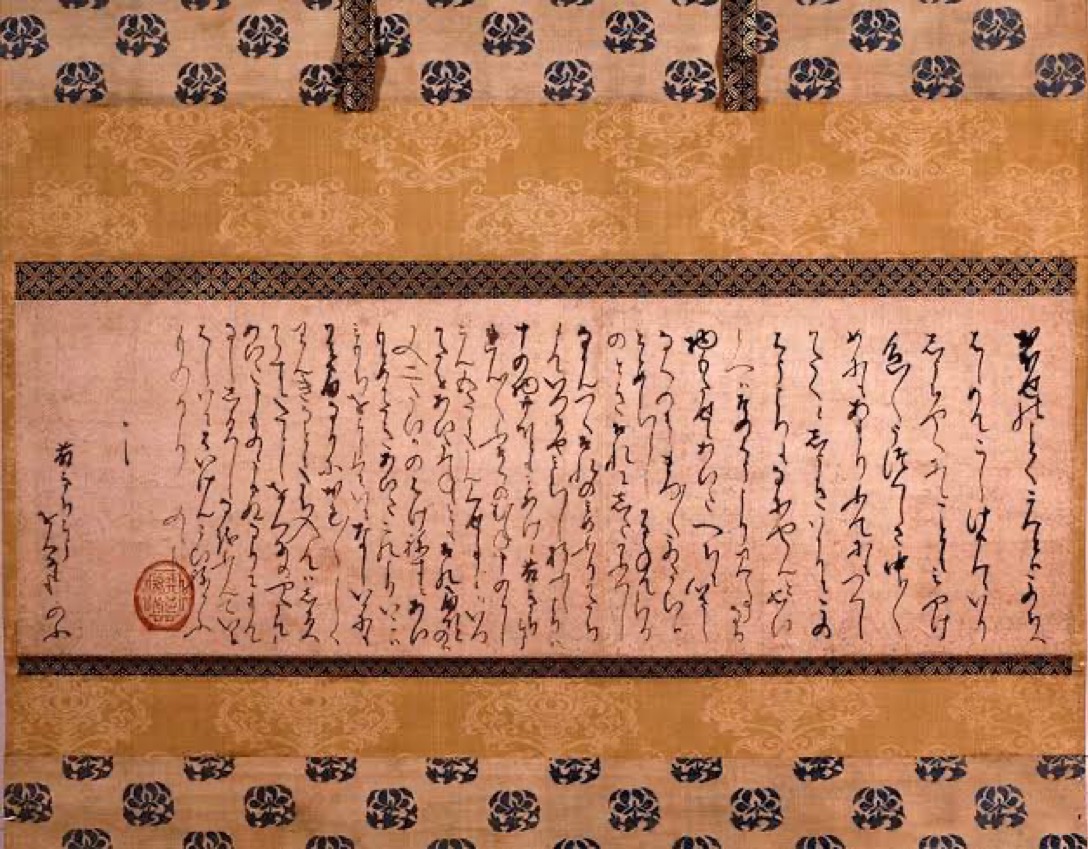 おほせのことくこんとハこのちへ
はしめてこしけさんニいり
しうちやくに候ことにみやけ
色〳〵うつくしさ中〳〵
めにもあまりふてにもつくし
かたく候しうきハかりにこの
はうよりもなにやらんと思ひ
候へハそのはうより見事なる
物もたせ候あひたへちに心さし
なくのまゝまつ〳〵このたひハ
とゝめまいらせ候かさねてまいり
のときそれにしたかふへく候
なかんつくそれのみめふりかたち
まていつそやみまいらせ候折ふしよりハ
十の物廿ほともみあけ申候藤きちらう
れん〳〵ふそくのむね申のよし
こん五たうたんくせ事候かいつ
かたをあひたつね候ともそれさまほとのハ
又二たひかのはけねすみあひ
もとめかたきあひたこれより以後ハ
みもちをようくわいになしいかにも
かみさまなりにおも〳〵しく
りんきなとにたち入候てハしかる
へからす候たゝしをんなのやくにて候
あひた申ものゝ申さぬなりにもてなし
しかるへく候なをふんていに
はしはにはいけんこひねかふ
ものなり
又々
かしく
藤きちらう
をんなとも
のふ
天下布武